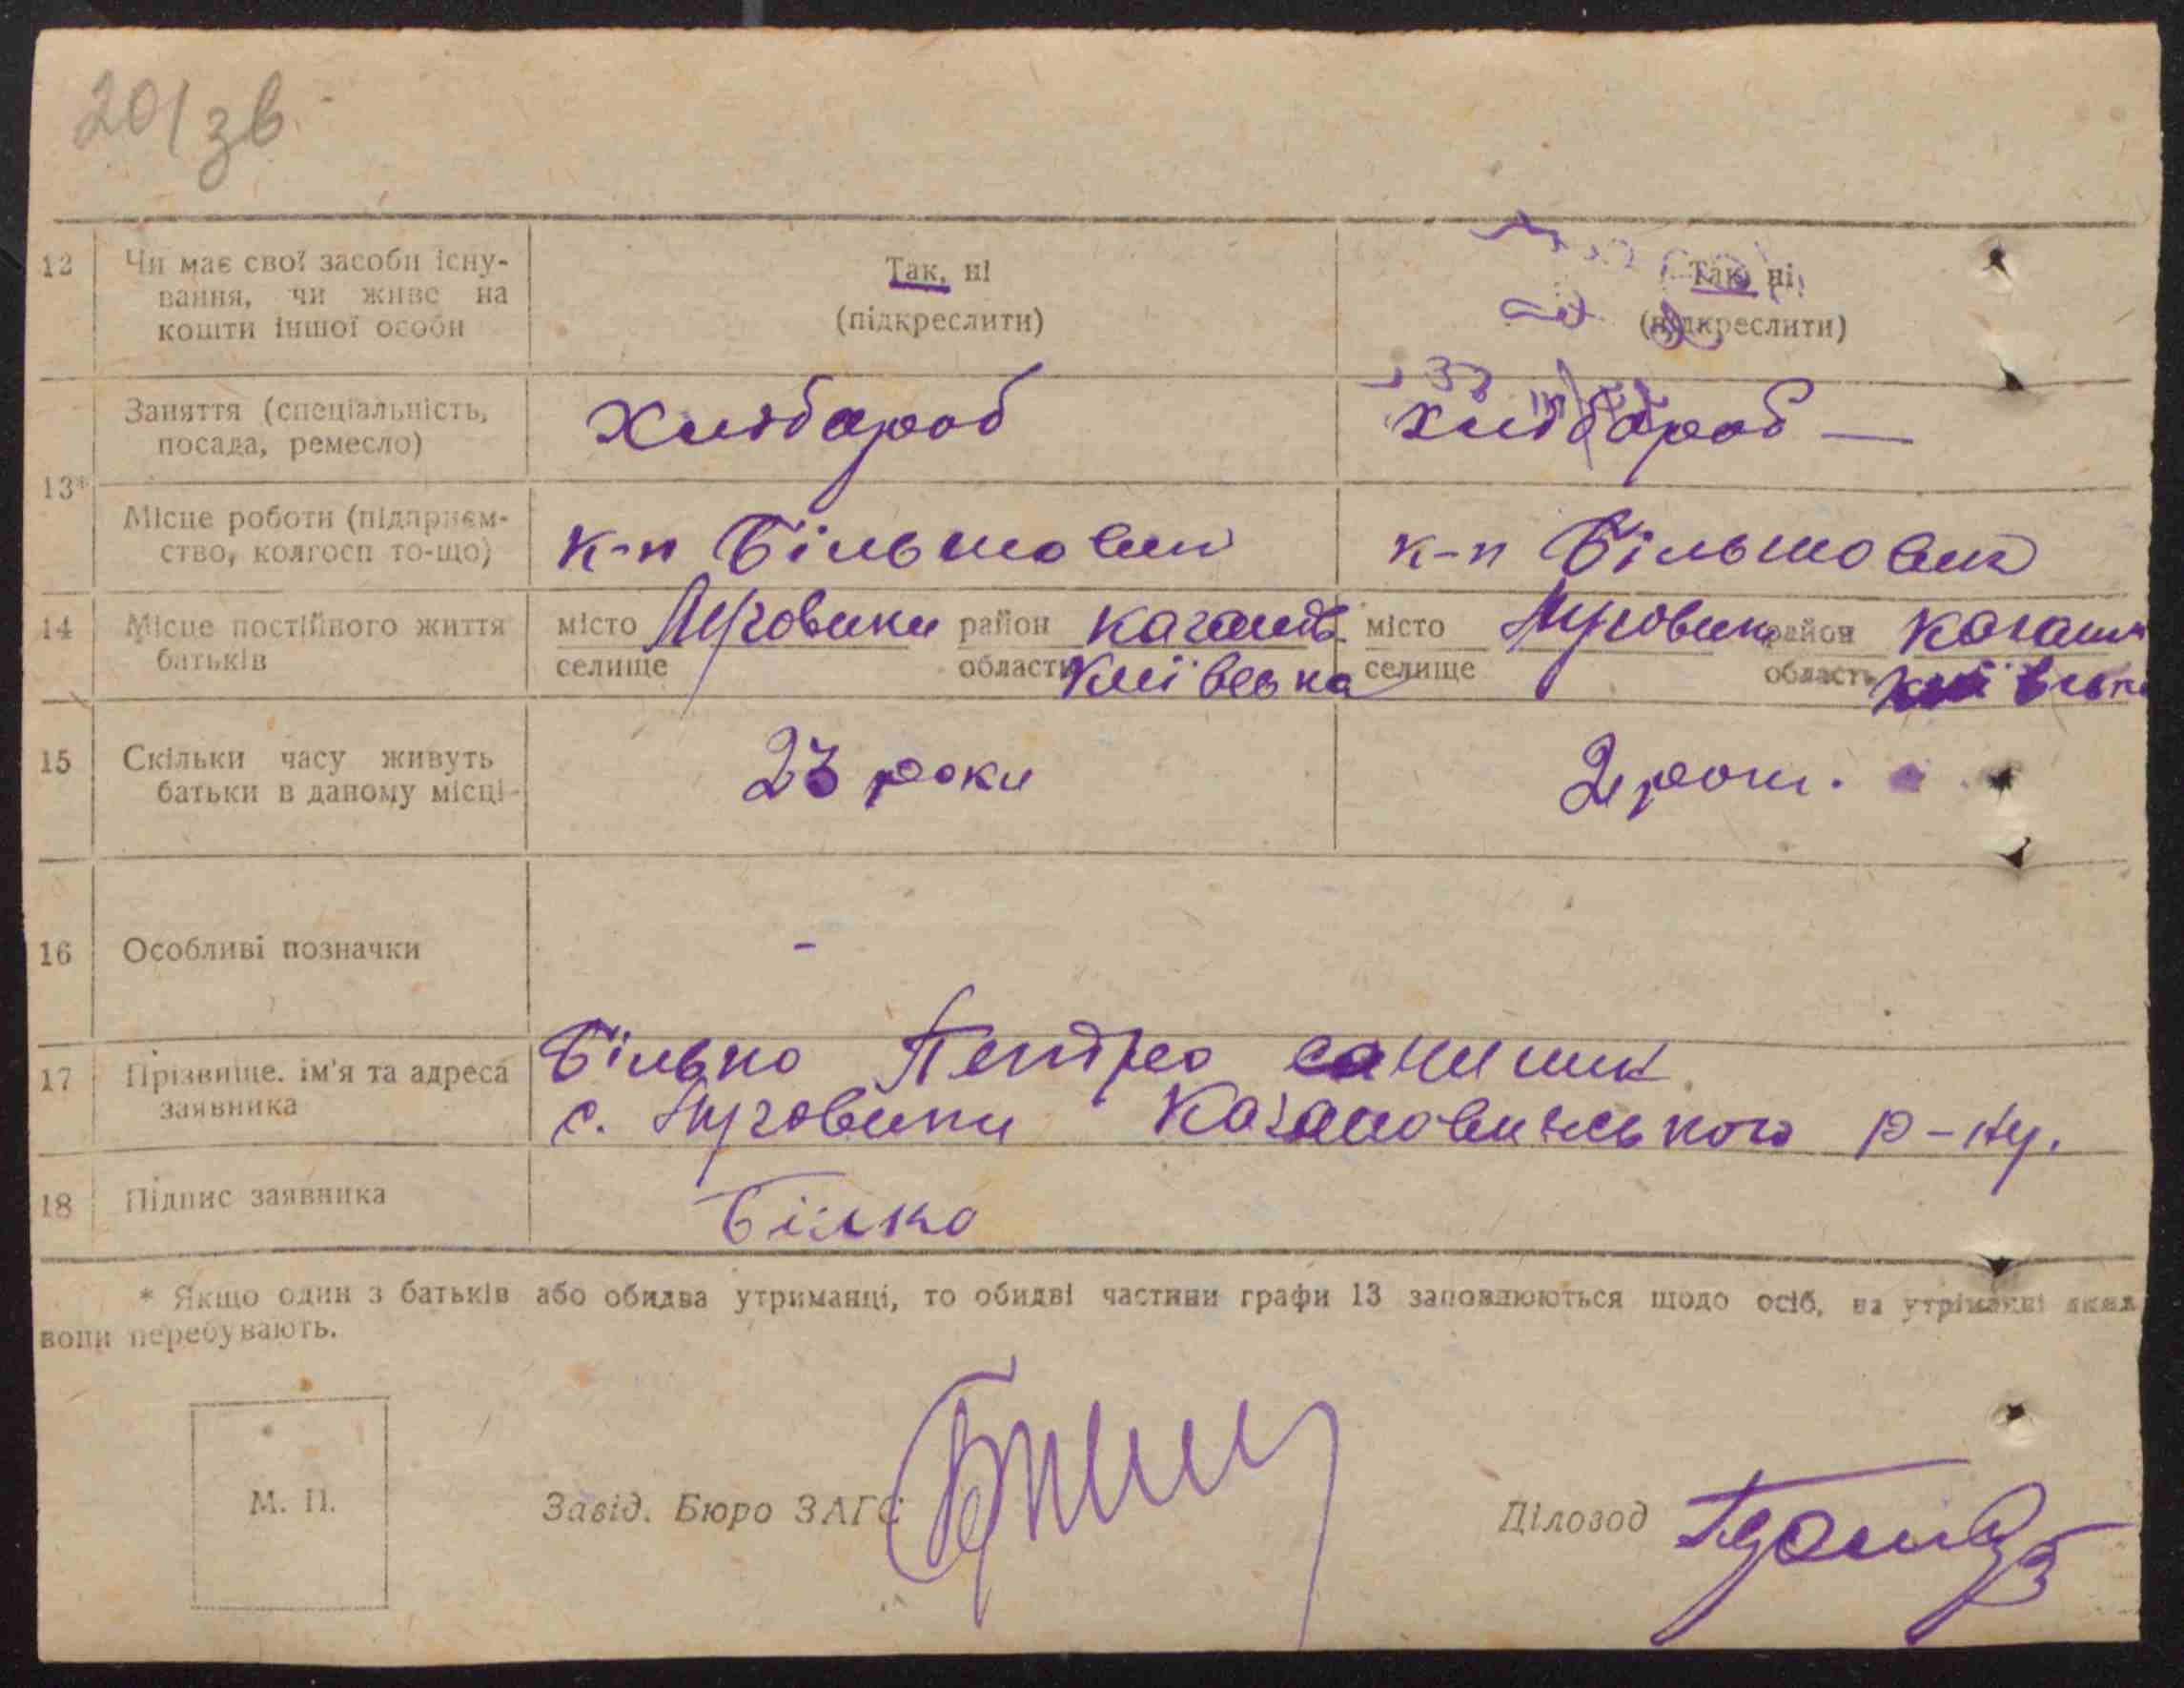 201зв.
12 Чи має свої засоби існу-
вання, чи живе на
кошти іншої особи
Так, ні
(підкреслити)
Так, ні
(підкреслити)
13*
Заняття (спеціальність,
посада, ремесло)
Хлібороб
Хлібороб —
Місце роботи (підприєм-
ство, колгосп то-що)
к-п Більшовик
к-п Більшовик
14 Місце постійного життя
батьків
місто Луговики район Каганов.
селище області Київська
місто Луговики район Каган
селище область Київська
15 Скільки часу живуть
батьки в даному місці
23 роки
16 Особливі позначки
-
17 Прізвище. ім'я та адреса
заявника
Білько
с. Луговики Кагановичського р-ну.
18 Підпис заявника
Білко
* Якщо один з батьків або обидва утриманці, то обидві частини графи 13 заповнюються щодо осіб, на утриманні яких
вони перебувають.
М. П.
Завід. Бюро ЗАГС
Діловод